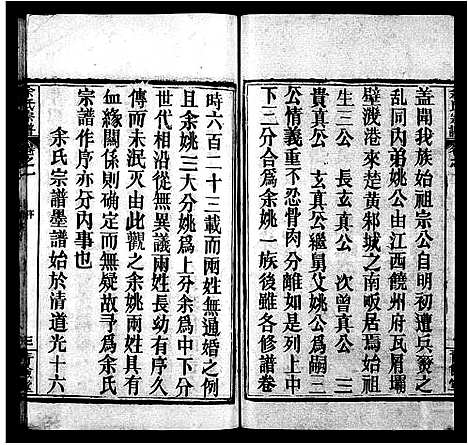 蓋聞我族始祖宗公自明初遭兵燹之
乱同内弟姚公由江西饒州府瓦屑壩
壁溅港來楚黄邾城之南畈居焉始祖
生三公　長玄真公　次曾真公　三
貴真公　玄真公繼舅父姚公爲嗣三
公情義重不忍骨肉分離以玄真公位
下三分合爲余姚一族後雖各修譜卷
時六百二十三載而兩姓無通婚之例
且余姚三大分姚爲上分余爲中下分
世代相從無異議兩姓長幼有序久
傳而未泯灭由此觀之余姚兩姓具有
血緣關係則确定而無疑故予爲余氏
宗譜作序亦分内事也
余氏宗譜墨譜始於清道光十六
余氏宗譜
卷之一
序
三